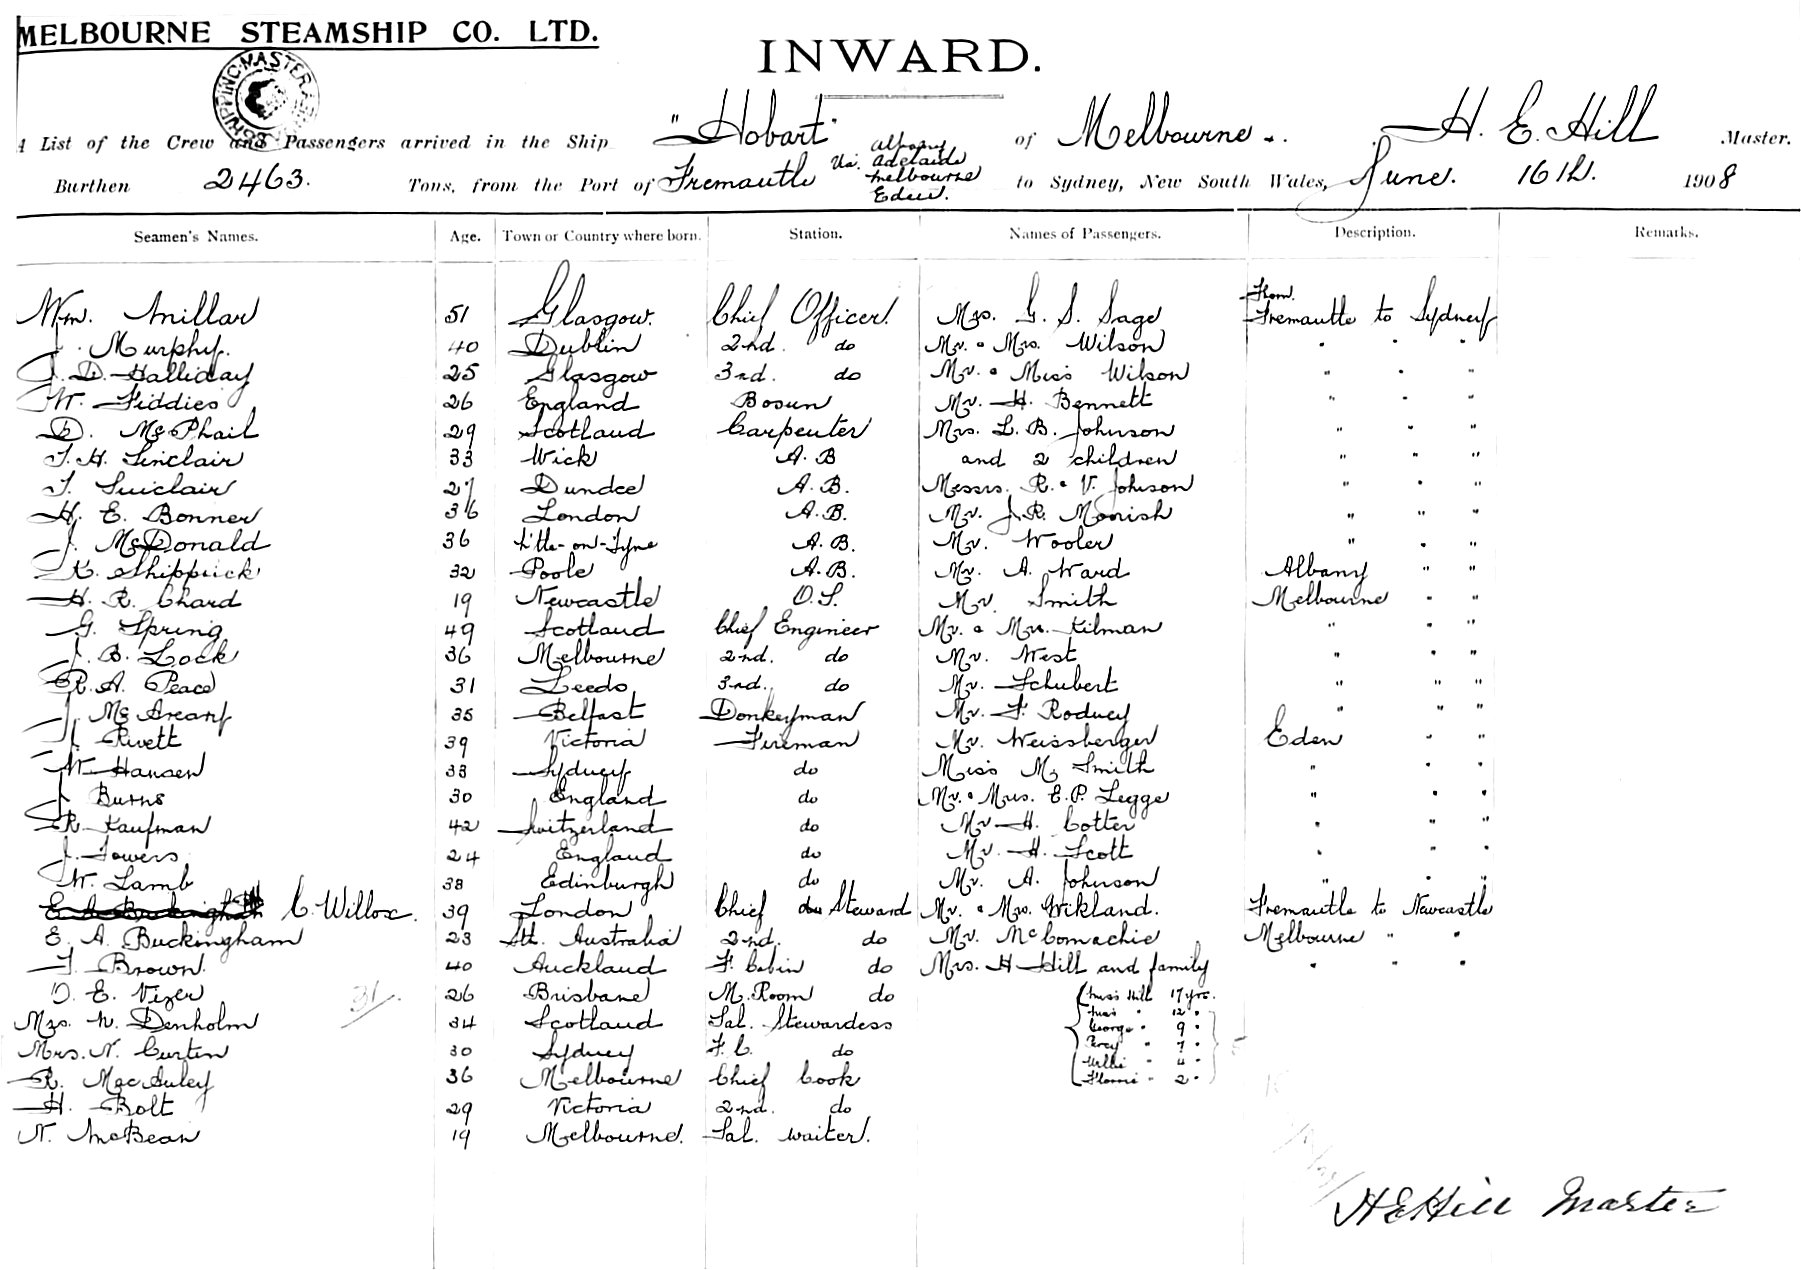 MELBOURNE STEAMSHIP CO. LTD.
INWARD.
A List of the Crew and Passengers arrived in the Ship "Hobart" of Melbourne H. E. Hill Master.
Burthen 2463. Tons, from the Port of Fremantle Via. Albany Adelaide Melbourne Eden. to Sydney, New South Wales, June. 16th. 1908
Seamen's Names. Age. Town or Country where born. Station. Names of Passengers. Description. Remarks.
From.
Wm. Millar 51 Glasgow. Chief Officer. Mrs. G. S. Sage Fremantle to Sydney
J. Murphy. 40 Dublin 2nd. do Mr. & Mrs. Wilson " " "
J. D. Halliday 25 Glasgow 3rd. do Mr. & Miss Wilson " " "
W. Fiddies 26 England Bosun Mr. H. Bennett " " "
D. McPhail 29 Scotland Carpenter Mrs. L. B. Johnson " " "
J. H. Sinclair 33 Wick A. B and 2 children " " "
J. Sinclair 27 Dundee A. B. Messrs. R. & V. Johnson " " "
H. E. Bonner 36 London A. B. Mr. J. R. Morrish " " "
J. McDonald 36 A. B. Mr. Wooler " " "
K. Shippick 32 Poole A. B. Mr. A. Ward Albany " "
H. R. Chard 19 Newcastle O. S. Mr. Smith Melbourne " "
G. Spring 49 Scotland Chief Engineer Mr. & Mrs. Kilman " " "
J. B. Lock 36 Melbourne 2nd. do Mr. West " " "
R. A. Peace 31 Leeds 3rd. do Mr. Schubert " " "
J. McAreavy 35 Belfast Donkeyman Mr. F. Rodney " " "
J. Rivett 39 Victoria Fireman Mr. Weissberger Eden " "
W. Hansen 33 Sydney do Miss M. Smith " " "
J Burns 30 England do Mr. & Mrs. E. P. Legge " " "
R. Kaufman 42 Switzerland do Mr H. Cotter " " "
J. Towers 24 England do Mr. H. Scott " " "
W. Lamb 38 Edinburgh do Mr. A. Johnson " " "
E. A. Buckingham C. Willox. 39 London Chief do Steward Mr. & Mrs. Wikland. Fremantle to Newcastle
E. A. Buckingham 23 Sth. Australia 2nd. do Mr. McComachie Melbourne " "
J. Brown. 40 Auckland F. Cabin do Mrs. H Hill and family " " "
O. E. Vizer 31/. 26 Brisbane M. Room do Miss Hill 17 yrs.
Mrs. W. Denholm 34 Scotland Sal. Stewardess Miss " 12 "
George " 9 "
Mrs. N. Curtin 30 Sydney F. C. do Percy " 7 "
Willie " 4 "
R. MacAuley 36 Melbourne Chief Cook Florrie " 2 "
5
H. Bolt 29 Victoria 2nd. do
N. McBean 19 Melbourne. Sal. waiter.
H E Hill Master